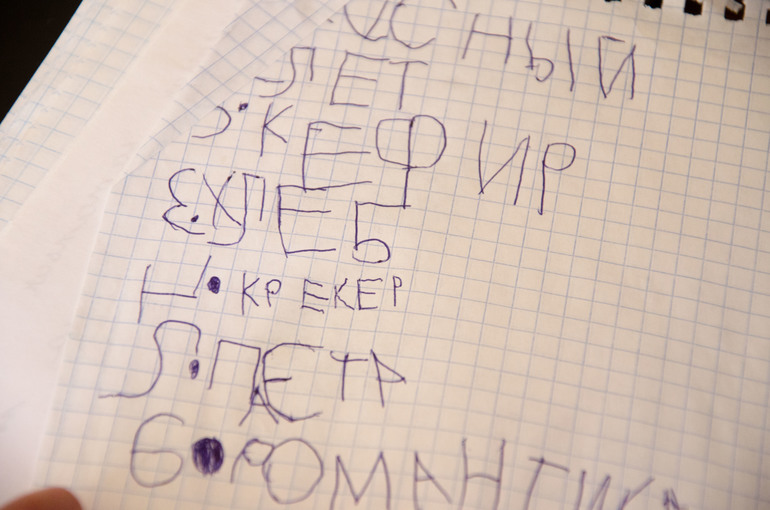 УСНЫЙ
ЛЕТ
2. КЕФИР
3. ХЛЕБ
4. КРЕКЕР
5. ПЕТР
6. РОМАНТИКА